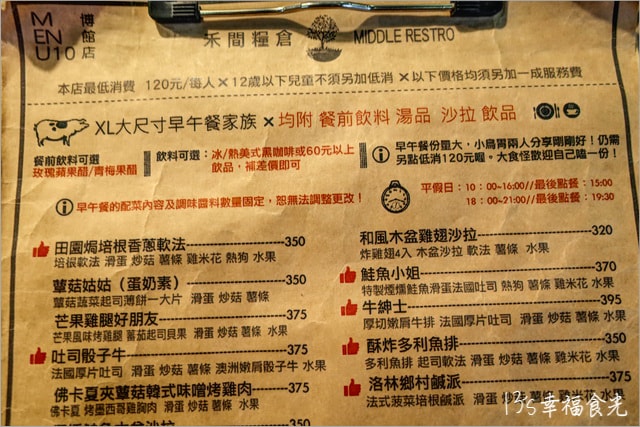 MENU10 博館店
禾間糧倉
MIDDLE RESTRO
本店最低消費 120元/每人×12歲以下兒童不須另加低消 ×以下價格均須另加一成服務費
XL大尺寸早午餐家族 × 均附 餐前飲料 湯品 沙拉 飲品
餐前飲料可選
玫瑰蘋果醋/青梅果醋
飲料可選: 冰/熱美式黑咖啡或60元以上
飲品,補差價即可
早午餐份量大,小鳥胃兩人分享剛剛好!仍需
另點低消120元喔。大食怪歡迎自己嗑一份!
早午餐的配菜內容及調味醬料數量固定,恕無法調整更改!
平假日:10:00~16:00//最後點餐:15:00
18:00~21:00//最後點餐:19:30
田園焗培根香蔥軟法 350
培根軟法 滑蛋 炒菇 薯條 雞米花 熱狗 水果
蕈菇姑姑(蛋奶素) 350
蕈菇蔬菜起司薄餅一大片 滑蛋 炒菇 薯條
芒果雞腿好朋友 375
芒果風味烤雞腿 蕃茄起司貝果 滑蛋 炒菇 薯條 水果
吐司骰子牛 375
法國厚片吐司 滑蛋 炒菇 薯條 澳洲嫩肩骰子牛 水果
佛卡夏夾蕈菇韓式味噌烤雞肉 375
佛卡夏 烤墨西哥雞胸肉 滑蛋 炒菇 薯條 水果
350
和風木盆雞翅沙拉 320
炸雞翅4入 木盆沙拉 軟法 薯條 水果
鮭魚小姐 370
特製煙燻鮭魚滑蛋法國吐司 熱狗 薯條 雞米花 水果
牛紳士 395
厚切嫩肩牛排 法國厚片吐司 滑蛋 炒菇 薯條 水果
酥炸多利魚排 375
多利魚排 起司軟法 滑蛋 炒菇 薯條 雞米花 水果
洛林鄉村鹹派 375
法式菠菜培根鹹派 滑蛋 炒菇 薯條 雞米花 水果
178幸福食光